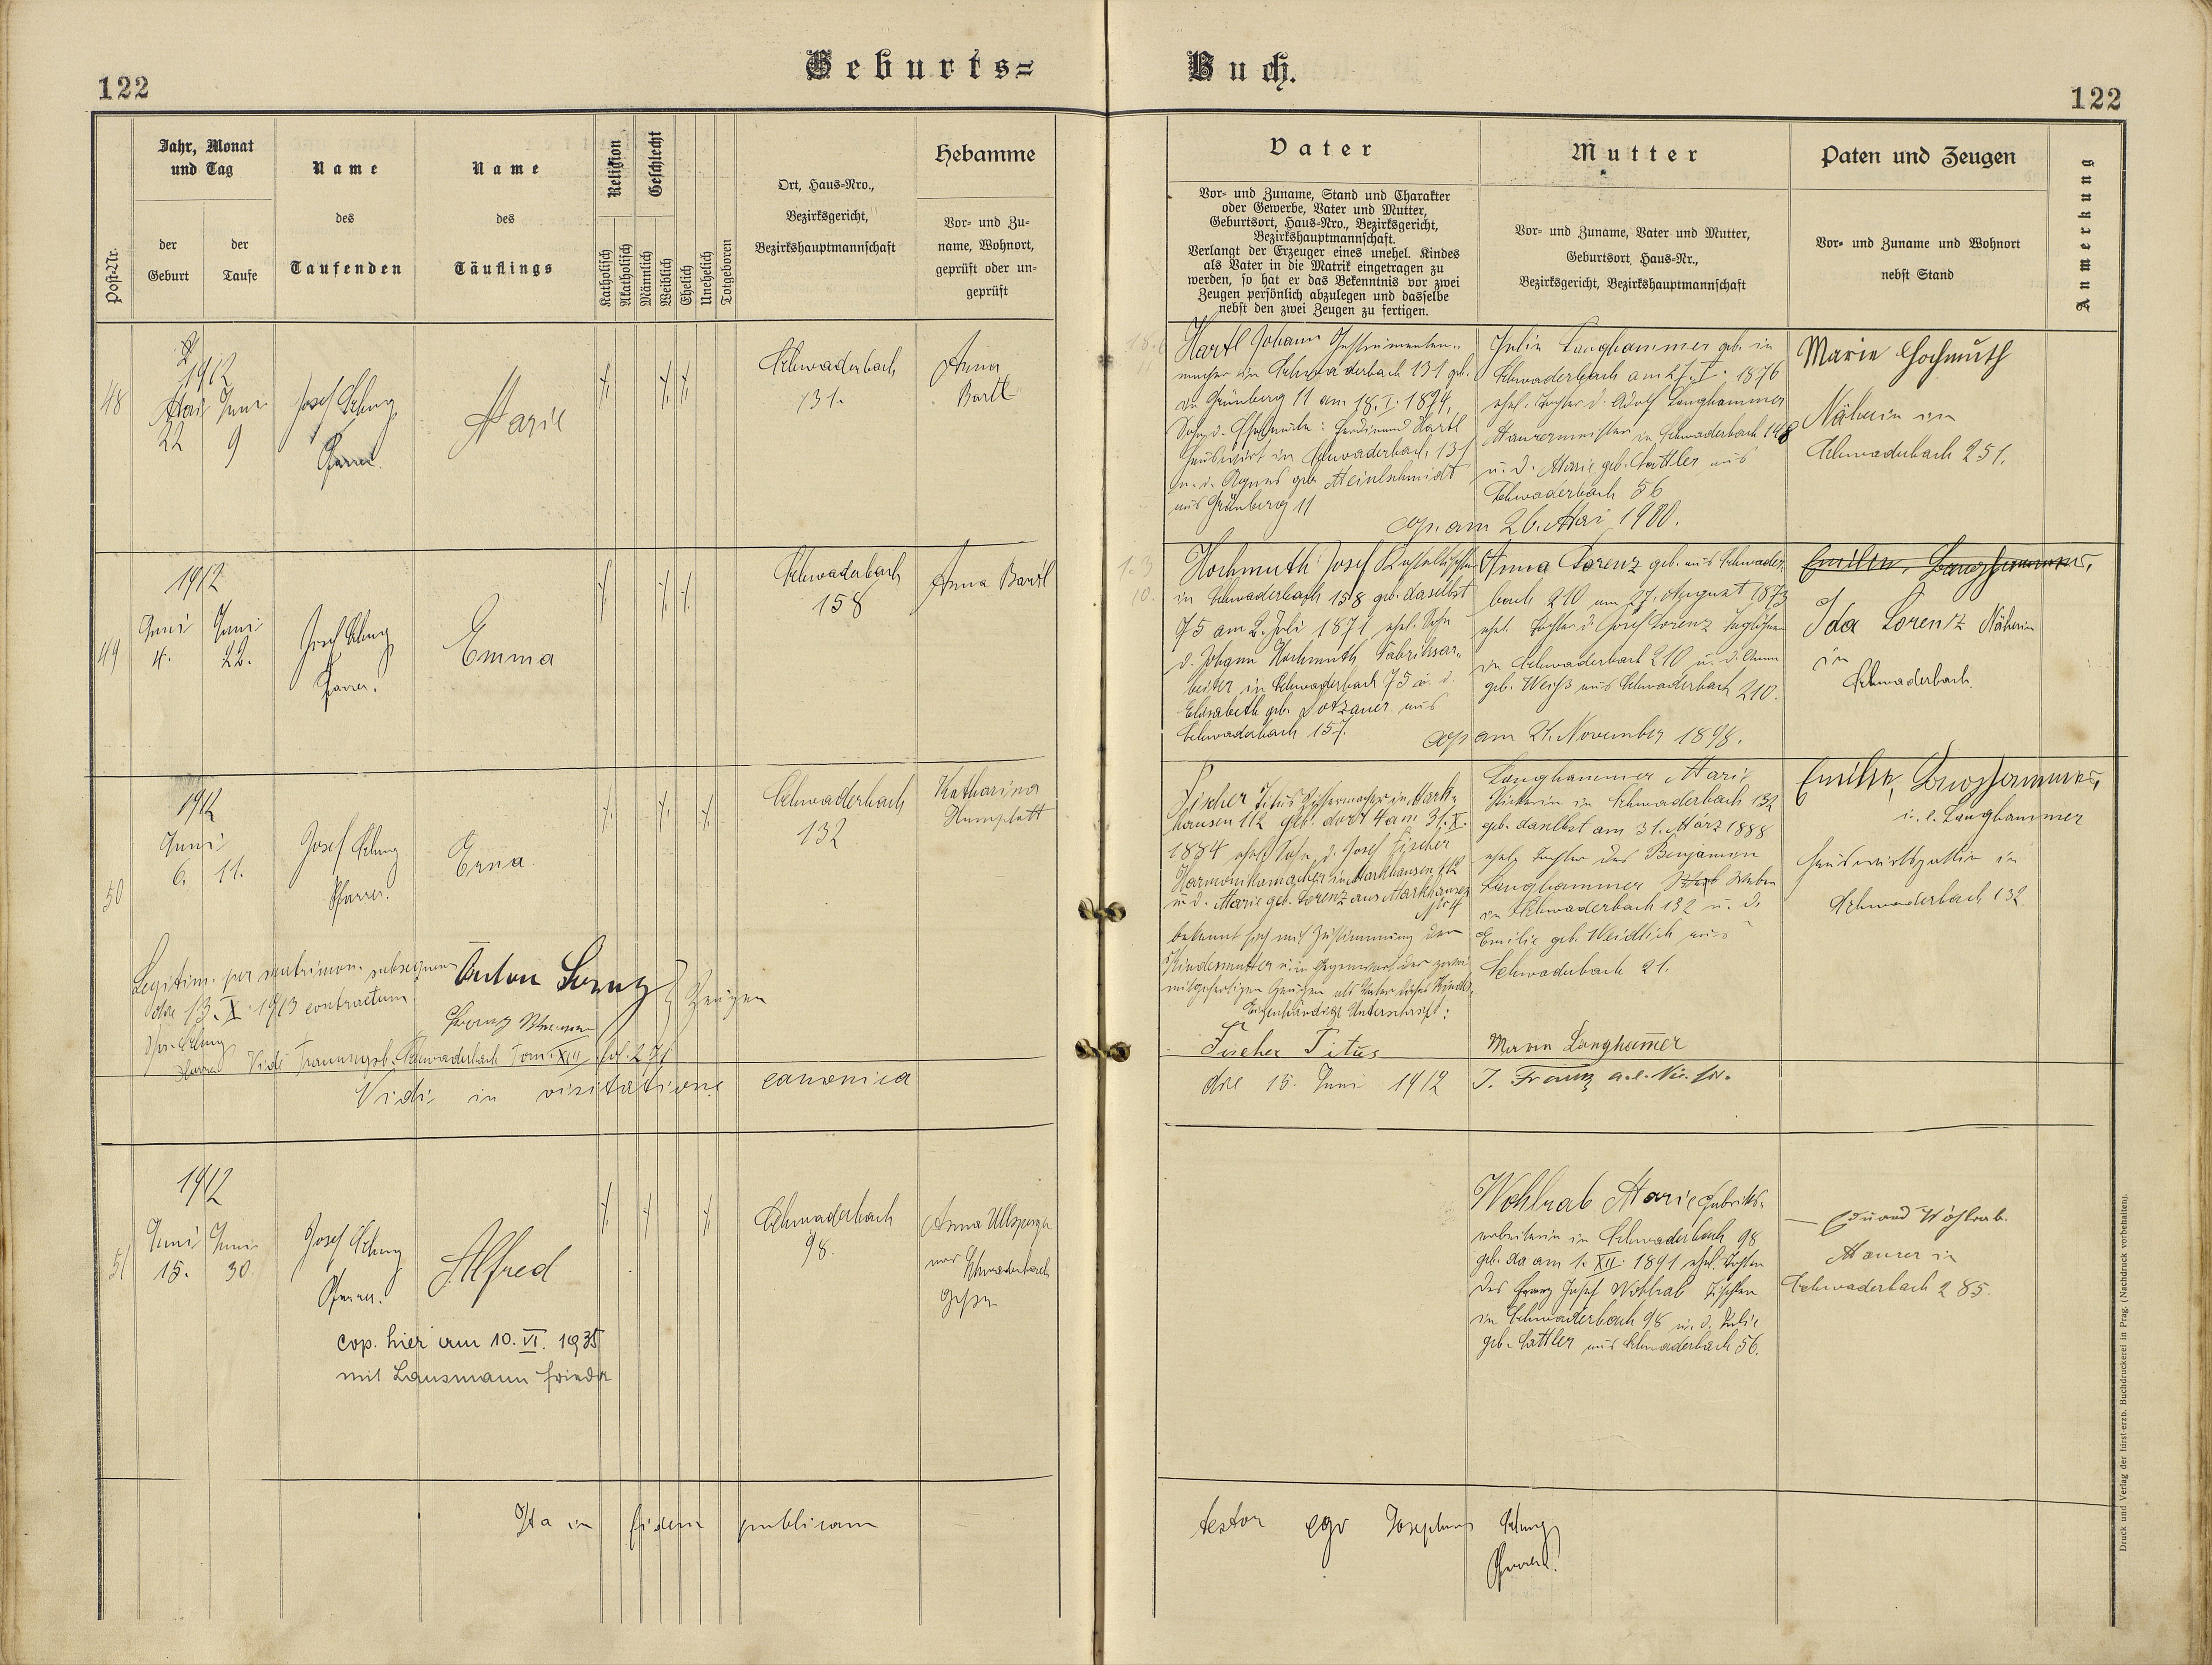 Geburts=
Buch.
122
122
Jahr, Monat
und Tag
der
Geburt
der
Taufe
Post-Nr.
Name
des
Taufenden
Name
des
Täuflings
Religion
Katholisch
Akatholisch
Geschlecht
Männlich
Weiblich
Ehelich
Unehelich
Totgeboren
Ort, Haus-Nro.,
Bezirksgericht,
Bezirkshauptmannschaft
Hebamme
Vor- und Zu-
name, Wohnort,
geprüft oder un-
geprüft
Vater
Vor- und Zuname, Stand und Charakter
oder Gewerbe, Vater und Mutter,
Geburtsort, Haus-Nro., Bezirksgericht,
Bezirkshauptmannschaft.
Verlangt der Erzeuger eines unehel. Kindes
als Vater in die Matrik eingetragen zu
werden, so hat er das Bekenntnis vor zwei
Zeugen persönlich abzulegen und dasselbe
nebst den zwei Zeugen zu fertigen.
Mutter
Vor- und Zuname, Vater und Mutter,
Geburtsort, Haus-Nr.,
Bezirksgericht, Bezirkshauptmannschaft
Paten und Zeugen
Vor- und Zuname und Wohnort
nebst Stand
Anmerkung
48
1912
Mai
22
Juni
9
Josef
Pfarrer
Marie
Schwaderbach
131.
Anna
Bartl
Hartl Johann Instrumenten-
macher in Schwaderbach 131 geb.
in Grünberg 11 am 18. I. 1874,
Sohn d. Ferdinand Hartl
Hauswirt in Schwaderbach 131
u. d. Agnes geb. Meinlschmidt
aus Grünberg 11
Julie Langhammer geb. in
Schwaderbach am 27. I. 1876
ehel. Tochter d. Adolf Langhammer
Maurermeister in Schwaderbach 148
u. d. Marie geb. Sattler aus
Schwaderbach 56
cop. am 26. Mai 1900.
Marie Hochmuth
Näherin in
Schwaderbach 251.
49
1912
Juni
4.
Juni
22.
Josef
Pfarrer.
Emma
Schwaderbach
158
Anna Bartl
Hochmuth Josef
in Schwaderbach 158 geb. daselbst
75 am 2. Juli 1871 ehel. Sohn
d. Johann Hochmuth, Fabriksar-
beiter in Schwaderbach 75 u. d.
Elisabeth geb. Dotzauer aus
Schwaderbach 157.
Anna Lorenz geb. aus Schwader-
bach 210 am 27. August 1873
ehel. Tochter d. Josef Lorenz Taglöhner
in Schwaderbach 210 u. d. Anna
geb. Weiß aus Schwaderbach 210.
cop. am 21. November 1898.
Emilie Langhammer,
Ida Lorenz Näherin
in
Schwaderbach.
50
1912
Juni
6. 11.
Josef
Pfarrer.
Erna.
Schwaderbach
132
Katharina
Fischer Titus in Mark-
hausen 112 geb. dort 4 am 31. X.
1884 ehel. Sohn d. Josef Fischer
Harmonikamacher in Markhausen 112
u. d. Marie geb. Lorenz aus Markhausen
Nr 4
bekennt sich mit Zustimmung der
Kindesmutter u. in Gegenwart der zwei
mitgefertigten Zeugen als Vater dieses Kindes.
Eigenhändige Unterschrift:
Fischer Titus
Langhammer Marie
Stickerin in Schwaderbach 132
geb. daselbst am 31. März 1888
ehel. Tochter des Benjamin
Langhammer Weber
in Schwaderbach 132 u. d.
Emilie geb. Weidlich aus
Schwaderbach 21.
Maria Langham̄er
Emilie Langhammer,
i. e. Langhammer
Hauswirtsgattin in
Schwaderbach 132.
Legitim. per matrimon. subsequens
dre 13. X. 1913 contractum
Pfarrer
Anton Lorenz
Franz
Zeugen
Vide Trauungsb. Schwaderbach Tom. XIII fol.
Vidi in visitatione canonica
dre 15. Juni 1912
J. Franz
51
1912
Juni
15.
Juni
30.
Josef
Pfarrer.
Alfred
cop. hier am 10. VI. 1935
mit Lausmann Frieda
Schwaderbach
98.
Anna Ullsperger
aus Schwaderbach
gepr.
Wohlrab Marie Fabriks-
arbeiterin in Schwaderbach 98
geb. da am 1. XII. 1891 ehel. Tochter
des Franz Josef Wohlrab Tischler
in Schwaderbach 98 u. d. Julie
geb. Sattler aus Schwaderbach 56.
Eduard Wohlrab.
Maurer in
Schwaderbach 285.
Ita in fidem publicam
testor ego Josephus
Pfarrer.
Druck und Verlag der fürst-erzb. Buchdruckerei in Prag. (Nachdruck vorbehalten).